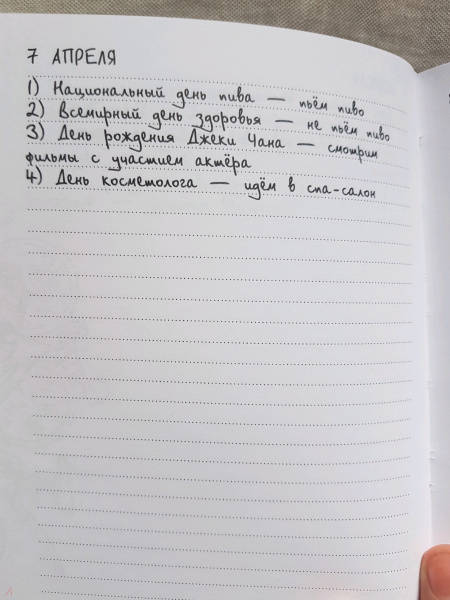 7 АПРЕЛЯ
1) Национальный день пива — пьём пиво
2) Всемирный день здоровья — не пьём пиво
3) День рождения Джеки Чана — смотрим
фильмы с участием актёра
4) День косметолога — идём в спа-салон